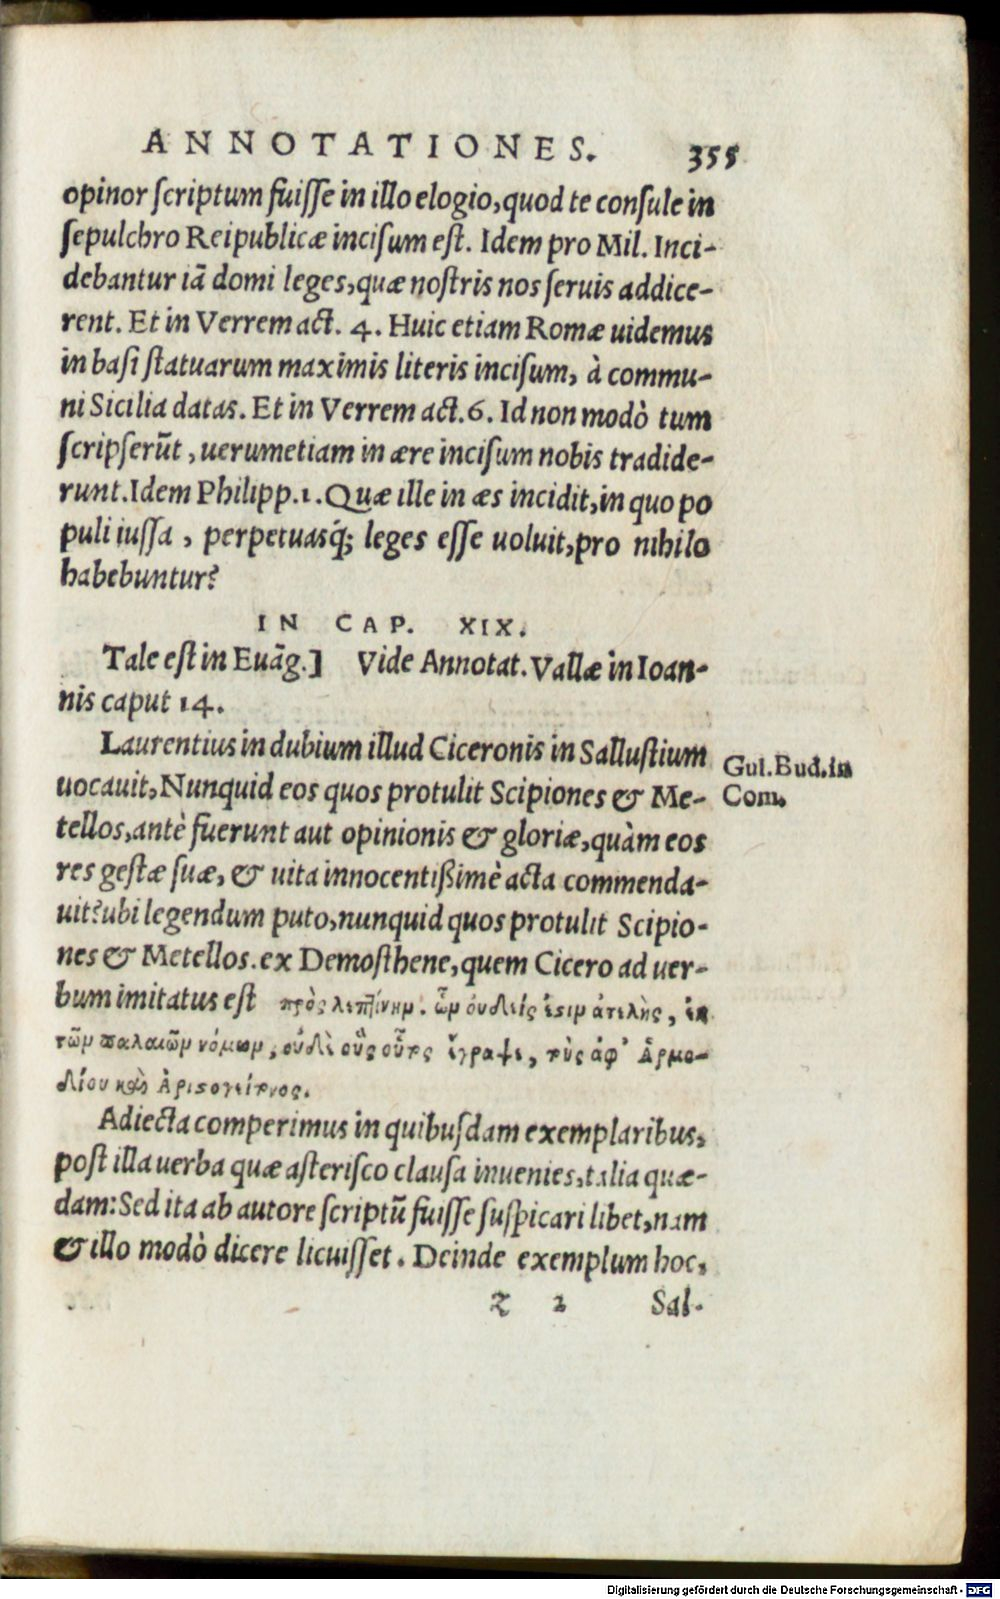 ANNOTATIONES. 355
opinor scriptum fuisse in illo elogio, quod te consule in
sepulchro Reipublicæ incisum est. Idem pro Mil. Inci-
debantur iã domi leges, quæ nostris nos seruis addice-
rent. Et in Verrem act. 4. Huic etiam Romæ uidemus
in basi statuarum maximis literis incisum, à commu-
ni Sicilia datas. Et in Verrem act. 6. Id non modò tum
scripserũt, uerumetiam in ære incisum nobis tradide-
runt. Idem Philipp. 1. Quæ ille in æs incidit, in quo po
puli iussa, perpetuasq́; leges esse uoluit, pro nihilo
habebuntur?
IN CAP. XIX.
Tale est in Euãg.] Vide Annotat. Vallæ in Ioan-
nis caput 14.
Laurentius in dubium illud Ciceronis in Sallustium
uocauit, Nunquid eos quos protulit Scipiones & Me-
tellos, antè fuerunt aut opinionis & gloriæ, quàm eos
res gestæ suæ, & uita innocentißimè acta commenda-
uit? ubi legendum puto, nunquid quos protulit Scipio-
nes & Metellos. ex Demosthene, quem Cicero ad uer-
bum imitatus est πρὸς λεπτίνην. ὧν οὐδείς ἐστιν ἀτελὴς, ἐκ
τῶν παλαιῶν νόμων, οὐδὲ οὓς οὗτος ἔγραψε, τοὺς ἀφ' Ἁρμο-
δίου καὶ Ἀριστογείτονος.
Adiecta comperimus in quibusdam exemplaribus,
post illa uerba quæ asterisco clausa inuenies, talia quæ-
dam: Sed ita ab autore scriptũ fuisse suspicari libet, nam
& illo modò dicere licuisset. Deinde exemplum hoc,
z 2 Sal-
Gul. Bud. in
Com.
Digitalisierung gefördert durch die Deutsche Forschungsgemeinschaft - DFG